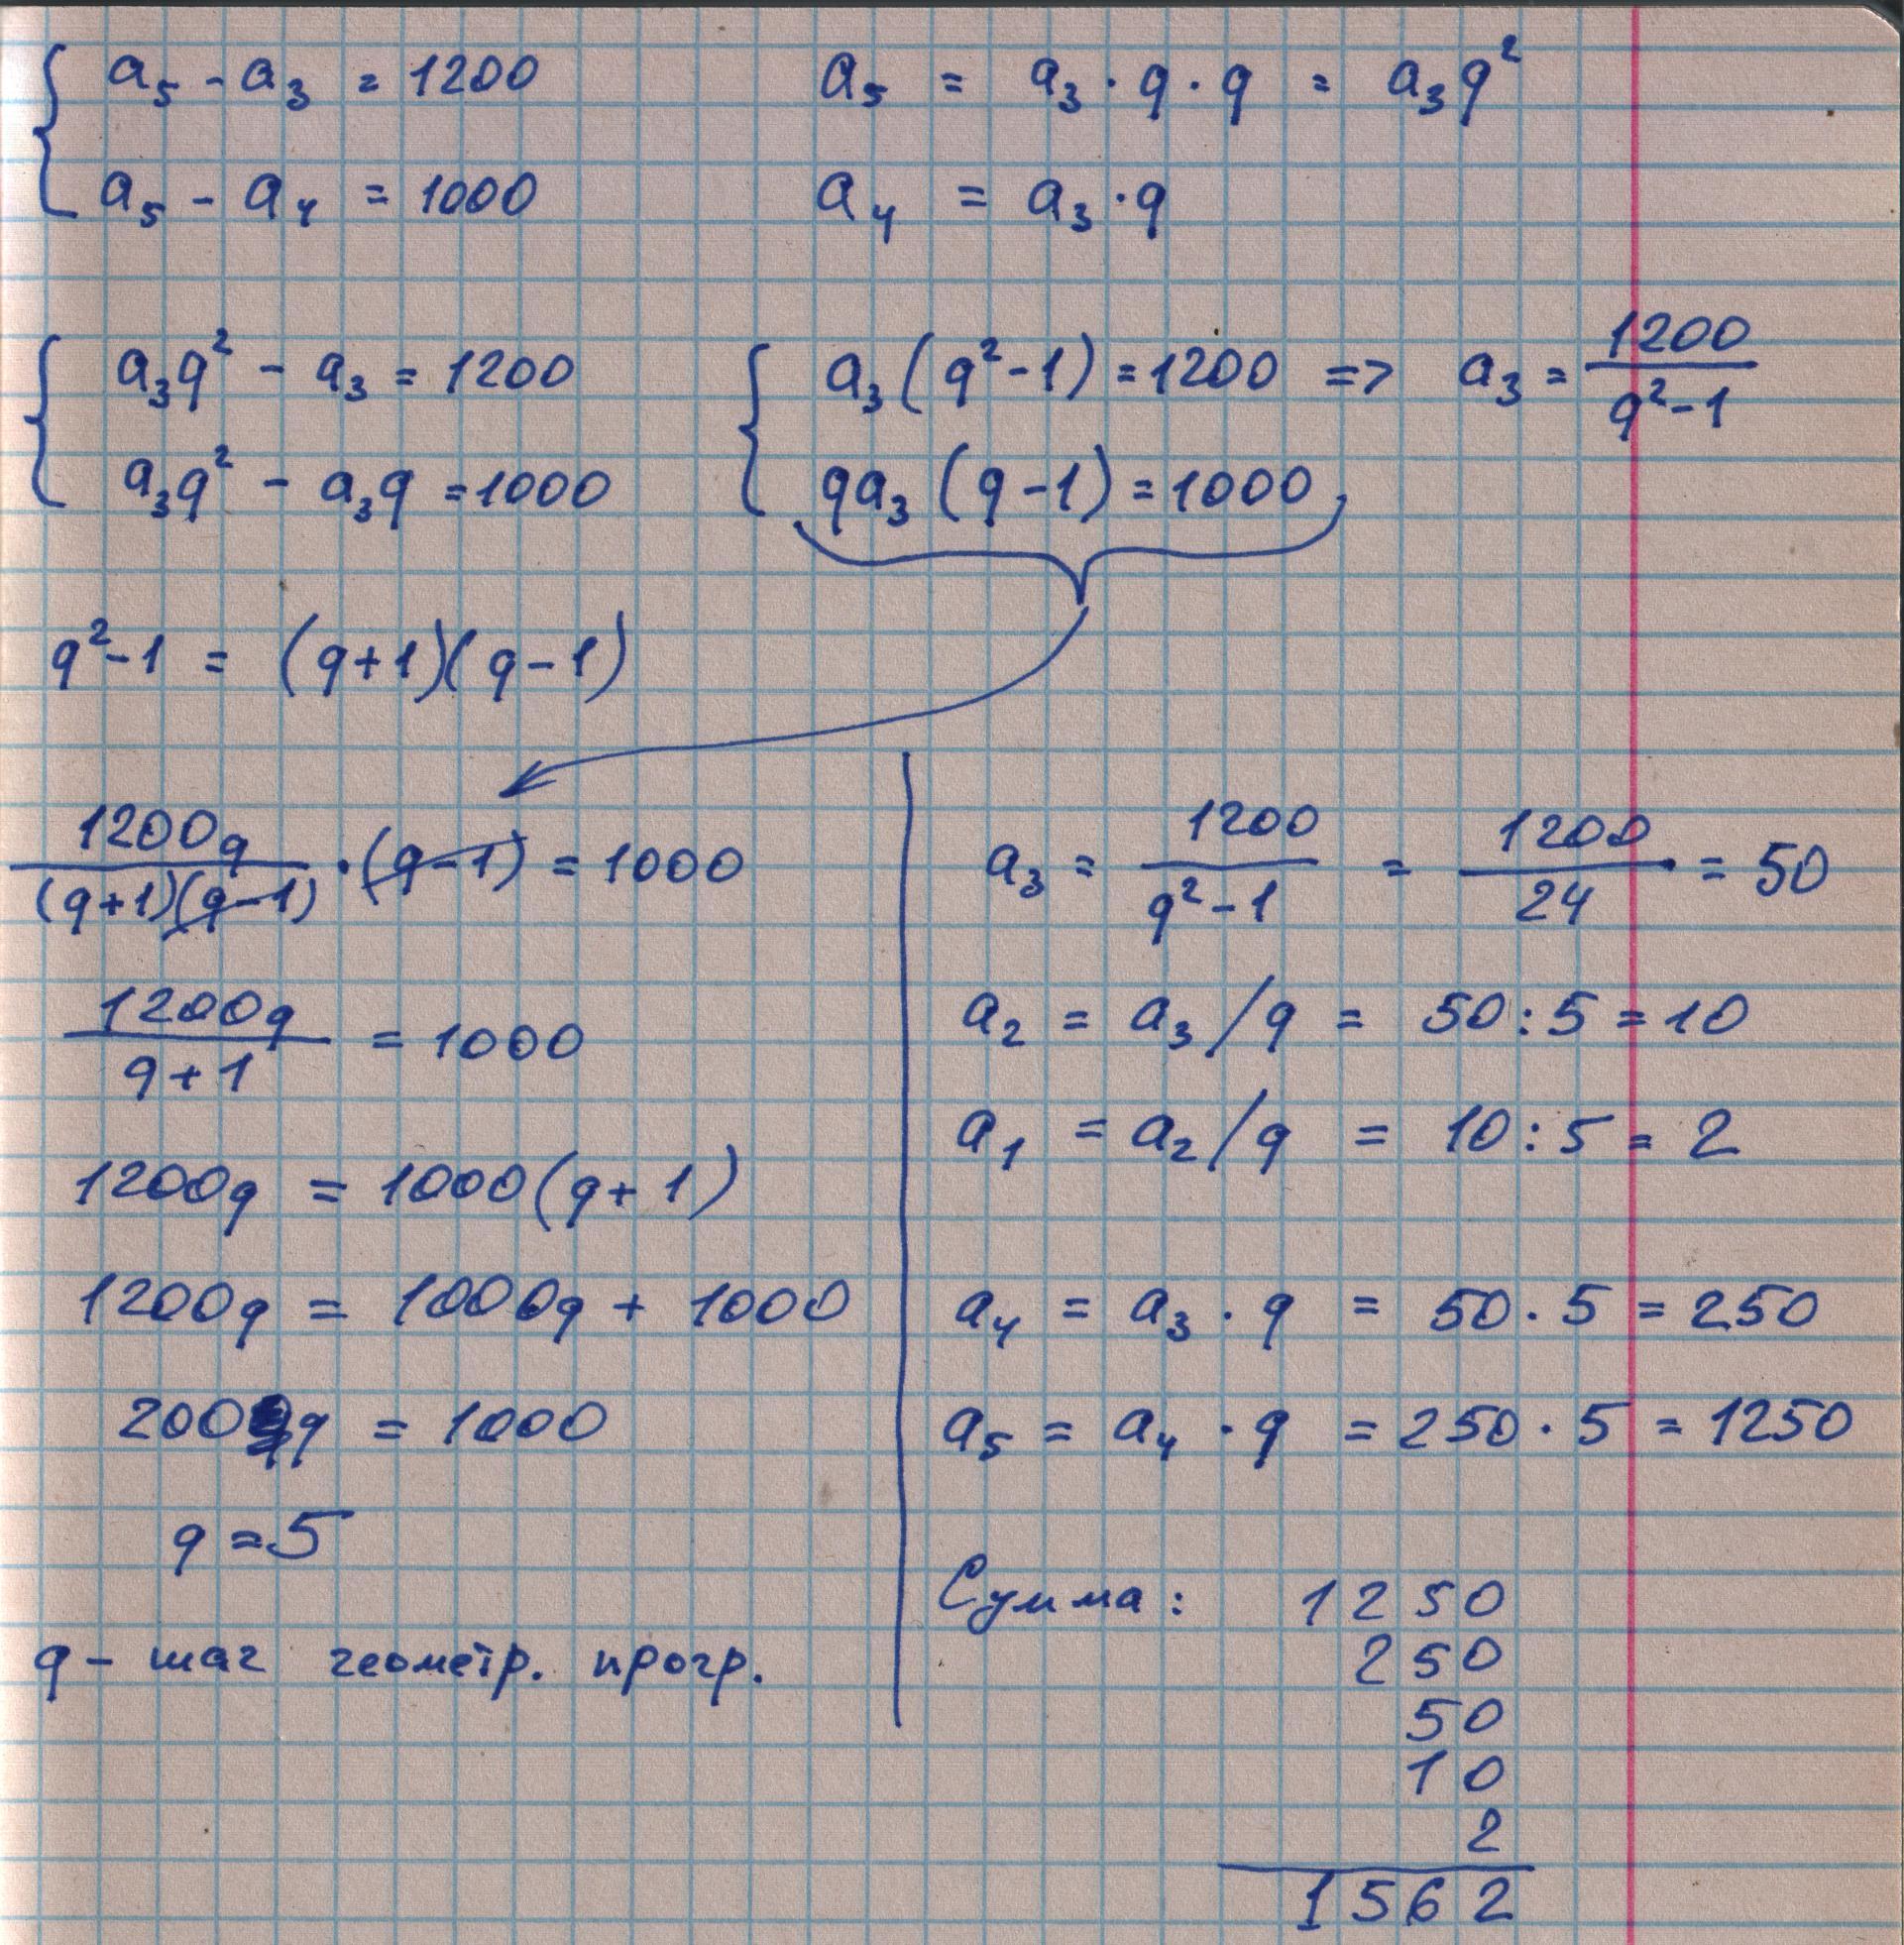 a₅ - a₃ = 1200
a₅ = a₃ · q · q = a₃q²
a₅ - a₄ = 1000
a₄ = a₃ · q
a₃q² - a₃ = 1200
a₃q² - a₃q = 1000
a₃(q²-1) = 1200 => a₃ = 1200/(q²-1)
qa₃(q-1) = 1000
q²-1 = (q+1)(q-1)
1200q/((q+1)(q-1)) · (q-1) = 1000
1200q/(q+1) = 1000
1200q = 1000(q+1)
1200q = 1000q + 1000
200q = 1000
q = 5
q - шаг геометр. прогр.
a₃ = 1200/(q²-1) = 1200/24 = 50
a₂ = a₃/q = 50:5 = 10
a₁ = a₂/q = 10:5 = 2
a₄ = a₃ · q = 50 · 5 = 250
a₅ = a₄ · q = 250 · 5 = 1250
Сумма: 1250
250
50
10
2
1562